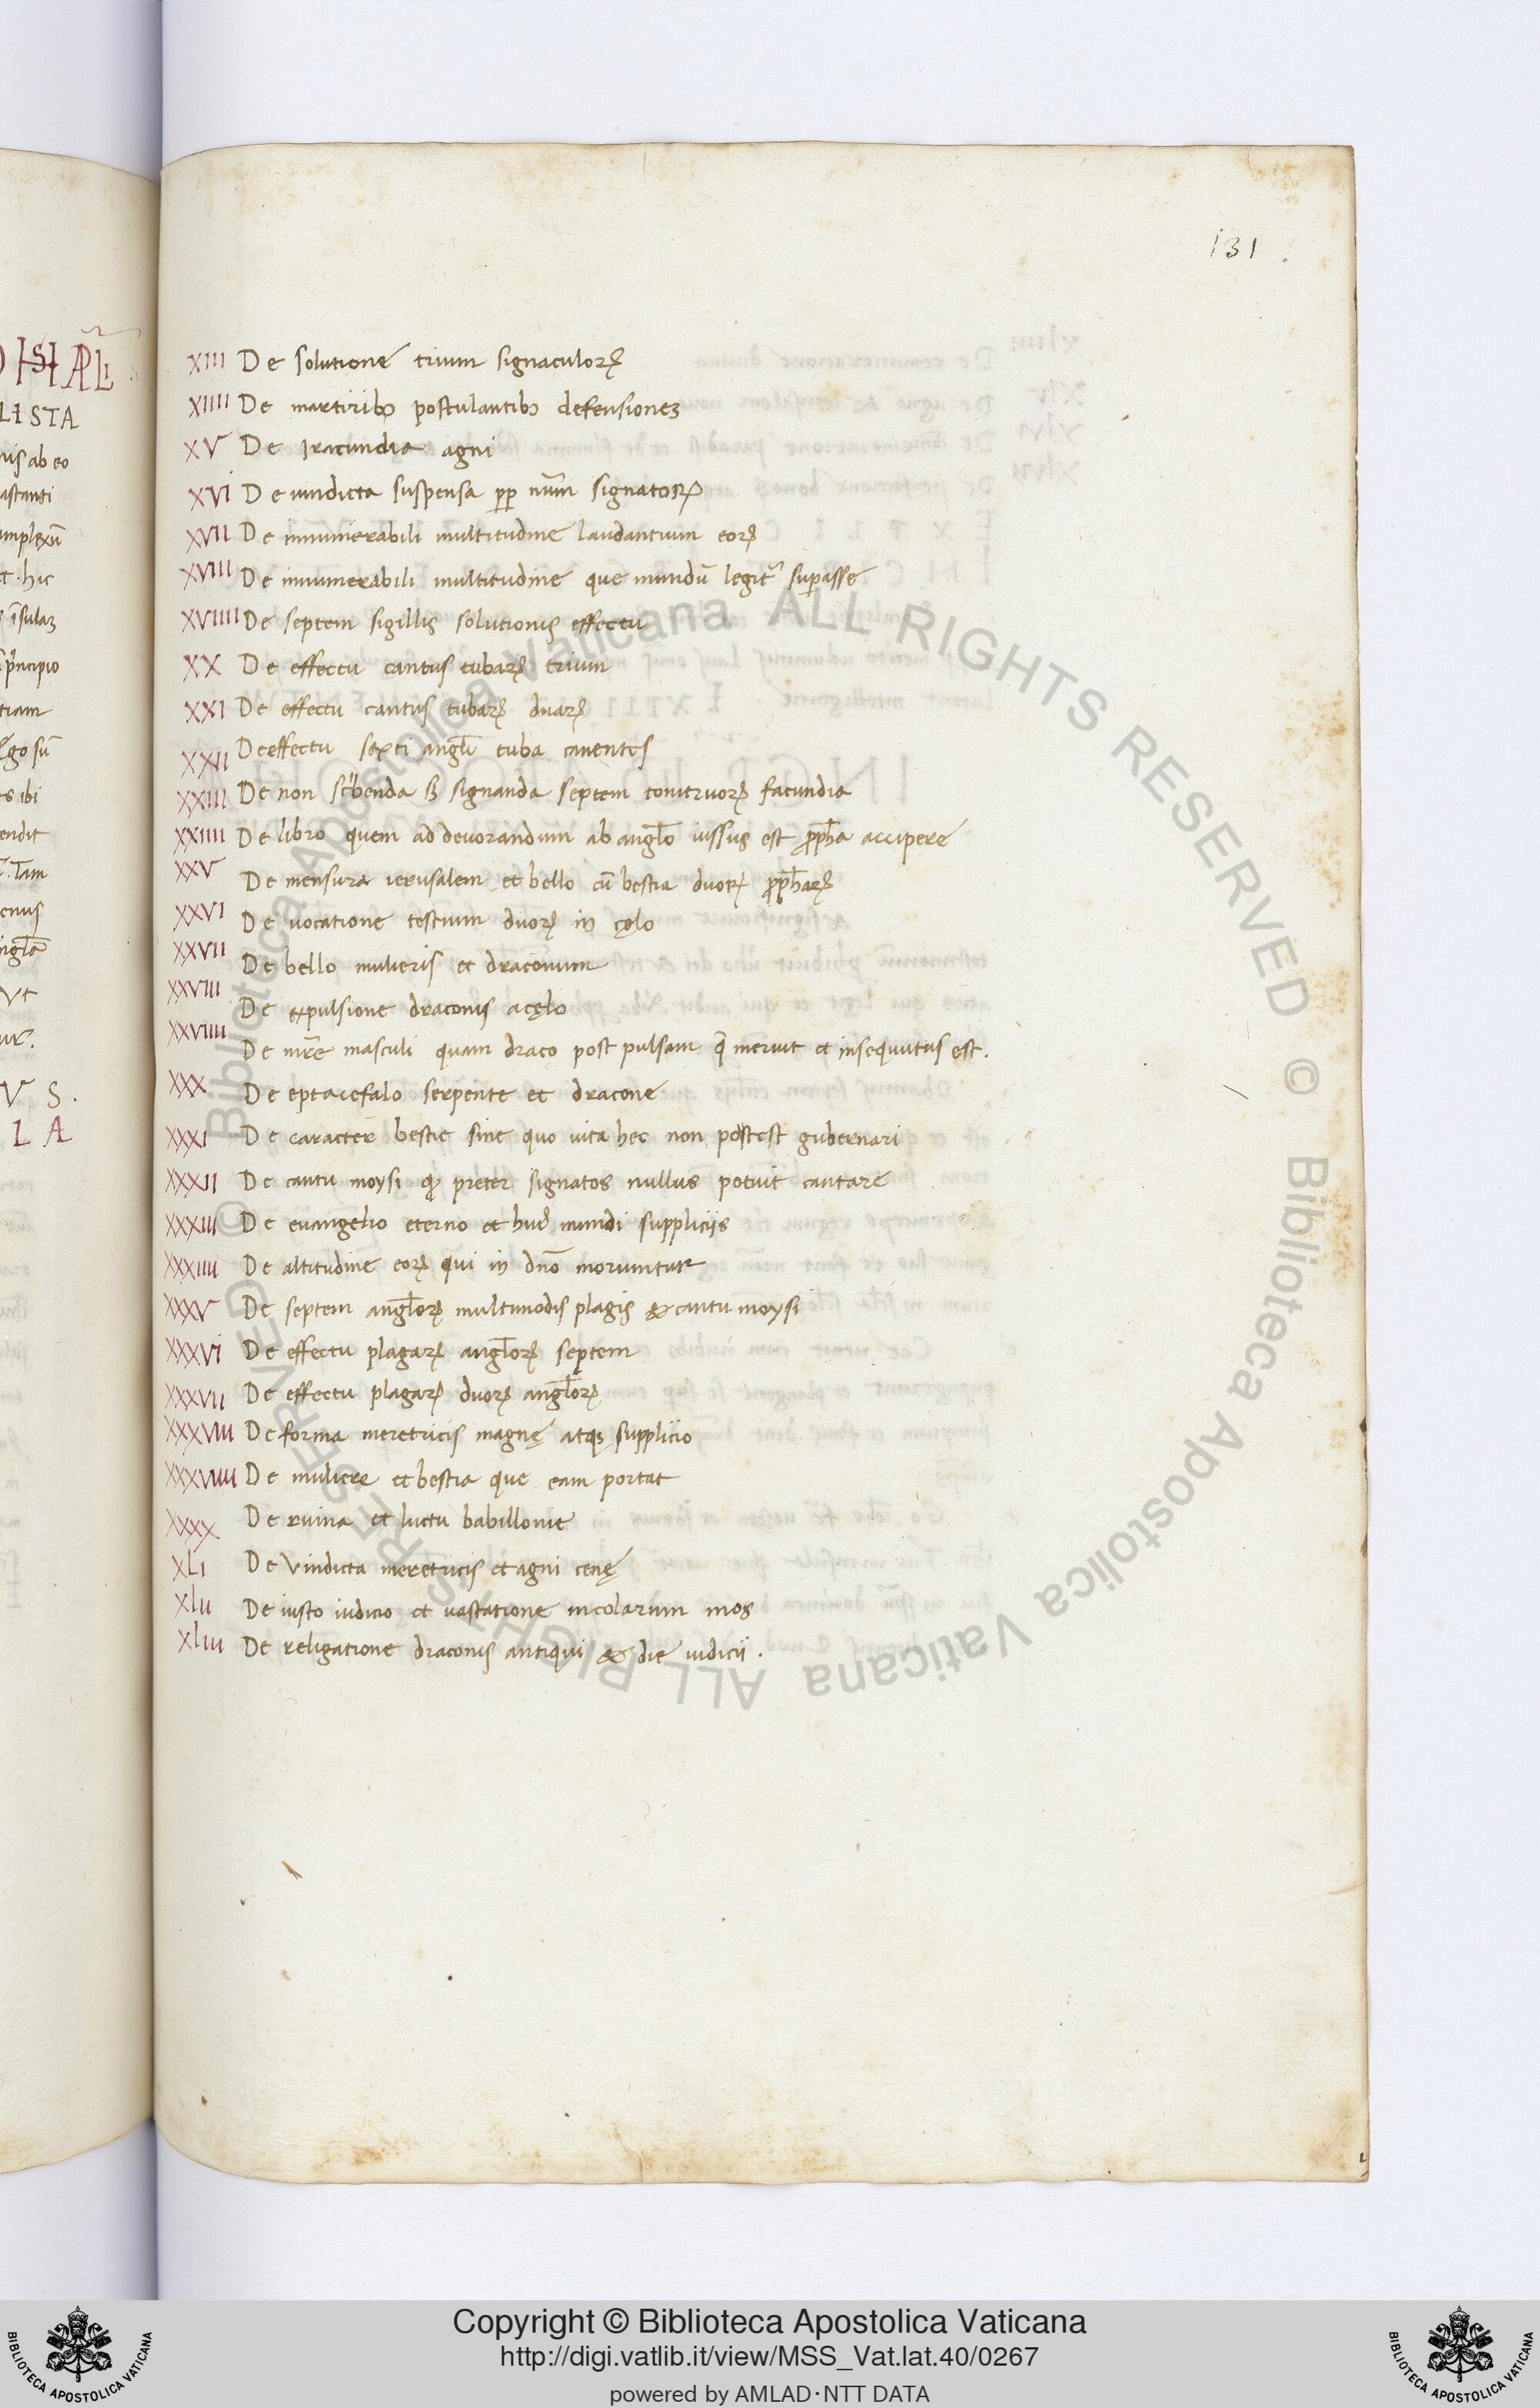 131
XIII De solutione trium signaculoꝝ
XIIII De martiribꝫ postulantibꝫ defensionem
XV De Iracundia agni
XVI De uindicta suspensa ꝓp num̅ signatoꝝ
XVII De innumerabili multitudine laudantium eoꝝ
XVIII De innumerabili multitudine que mundū legit᷑ suꝑasse
XVIIII De septem sigillis solutionis effectu
XX De effectu cantus tubaꝝ trium
XXI De effectu cantus tubaꝝ duaꝝ
XXII De effectu sexti angl̅i tuba canentis
XXIII De non scͥbenda sꝫ signanda septem tonitruoꝝ facundia
XXIIII De libro quem ad deuorandum ab angl̅o iussus est ꝓph̅a accipere
XXV De mensura ierusalem et bello cū bestia duoꝝ ꝓph̅aꝝ
XXVI De uocatione testium duoꝝ in cęlo
XXVII De bello mulieris et draconum
XXVIII De expulsione draconis a cęlo
XXVIIII De mr̅e masculi quam draco post pulsam q̄ meruit et insequutus est.
XXX De eptacefalo serpente et dracone
XXXI De caracter bestie sine quo uita hec non potest gubernari
XXXII De cantu moysi qᷓ preter signatos nullus potuit cantare
XXXIII De euangelio eterno et hui᷒ mundi suppliciis
XXXIIII De altitudine eoꝝ qui in dn̅o moriuntur
XXXV De septem angl̅oꝝ multimodis plagis & cantu moysi
XXXVI De effectu plagaꝝ angl̅oꝝ septem
XXXVII De effectu plagaꝝ duoꝝ angl̅oꝝ
XXXVIII De forma meretricis magnę atqꝫ supplicio
XXXVIIII De muliere et bestia que eam portat
XXXX De ruina et luctu babillonie
XLI De Vindicta meretricis et agni cenę
XLII De iusto iudicio et uastatione incolarum mos
XLIII De religatione draconis antiqui & die iudicii.
© Biblioteca Apostolica Vaticana ALL RIGHTS RESERVED © Biblioteca Apostolica Vaticana ALL RIGHTS RESERVED
Copyright © Biblioteca Apostolica Vaticana
http://digi.vatlib.it/view/MSS_Vat.lat.40/0267
powered by AMLAD·NTT DATA
BIBLIOTECA APOSTOLICA VATICANA
BIBLIOTECA APOSTOLICA VATICANA